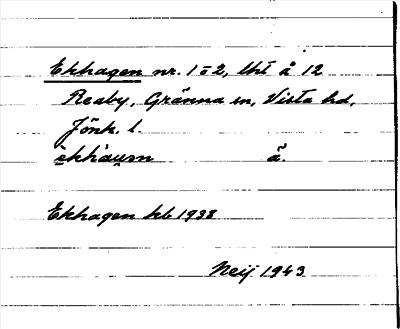 Ekhagen nr. 1 o 2, lht å 12
Reaby, Gränna sn, Vista hd,
Jönk. l.
ä.
Ekhagen kb 1938
Neij 1943